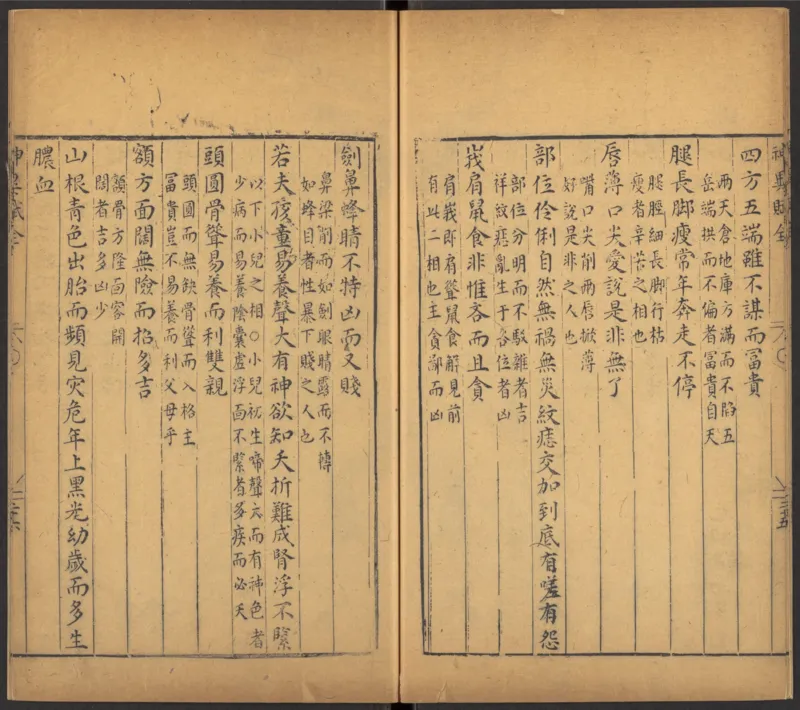 四方五端雖不謀而冨貴
兩天倉地庫方滿而不陷五
岳端拱而不偏者冨貴自天
腿長脚瘦常年奔走不停
腿脛細長脚行枯
瘦者辛苦之相也
唇薄口尖愛說是非無了
嘴口尖削兩唇掀薄
好說是非之人也
部位伶俐自然無禍無災紋痣交加到底有嗟有怨
部位分明而不駁雜者吉
祥紋痣亂生于各位者凶
峩肩鼠食非惟吝而且貪
肩峩即肩聳鼠食解見前
有此二相也主貪鄙而凶
二五
劍鼻蜂睛不特凶而又賤
鼻梁削而如劍眼睛露而不轉
如蜂目者性暴下賤之人也
若夫孩童易養聲大有神欲知夭折難成腎浮不緊
以下小兒之相○小兒初生啼聲大而有神色者
少病而易養陰囊虛浮而不緊者多疾而必夭
頭圓骨聳易養而利雙親
頭圓而無缺骨聳而入格主
冨貴豈不易養而利父母乎
額方面闊無險而招多吉
額骨方隆面容開
闊者吉多凶少
山根青色出胎而頻見灾危年上黑光幼歲而多生
膿血
二六